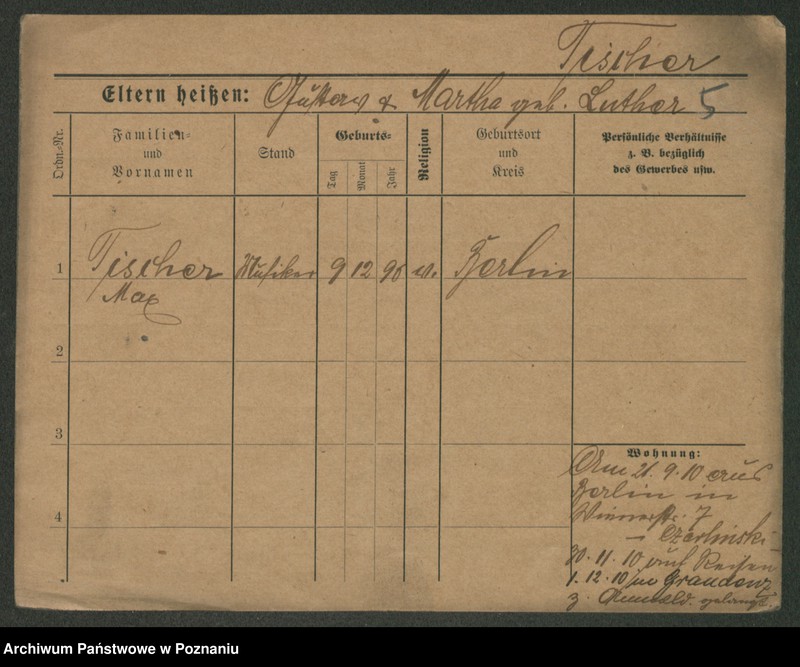 Tischer
Eltern heißen: Gustav & Martha geb. Luther 5
Ordn.-Nr. Familien- und Vornamen Stand Geburts- Tag Monat Jahr Religion Geburtsort und Kreis Persönliche Verhältnisse z. B. bezüglich des Gewerbes usw.
1 Tischer Musiker 9 12 90 ev. Berlin
Max
2
3
Wohnung:
Am 21.9.10 aus
Berlin in
7
4
Czarlinski
30.11.10 auf Reisen
1.12.10 in Graudenz
z.
Archiwum Państwowe w Poznaniu